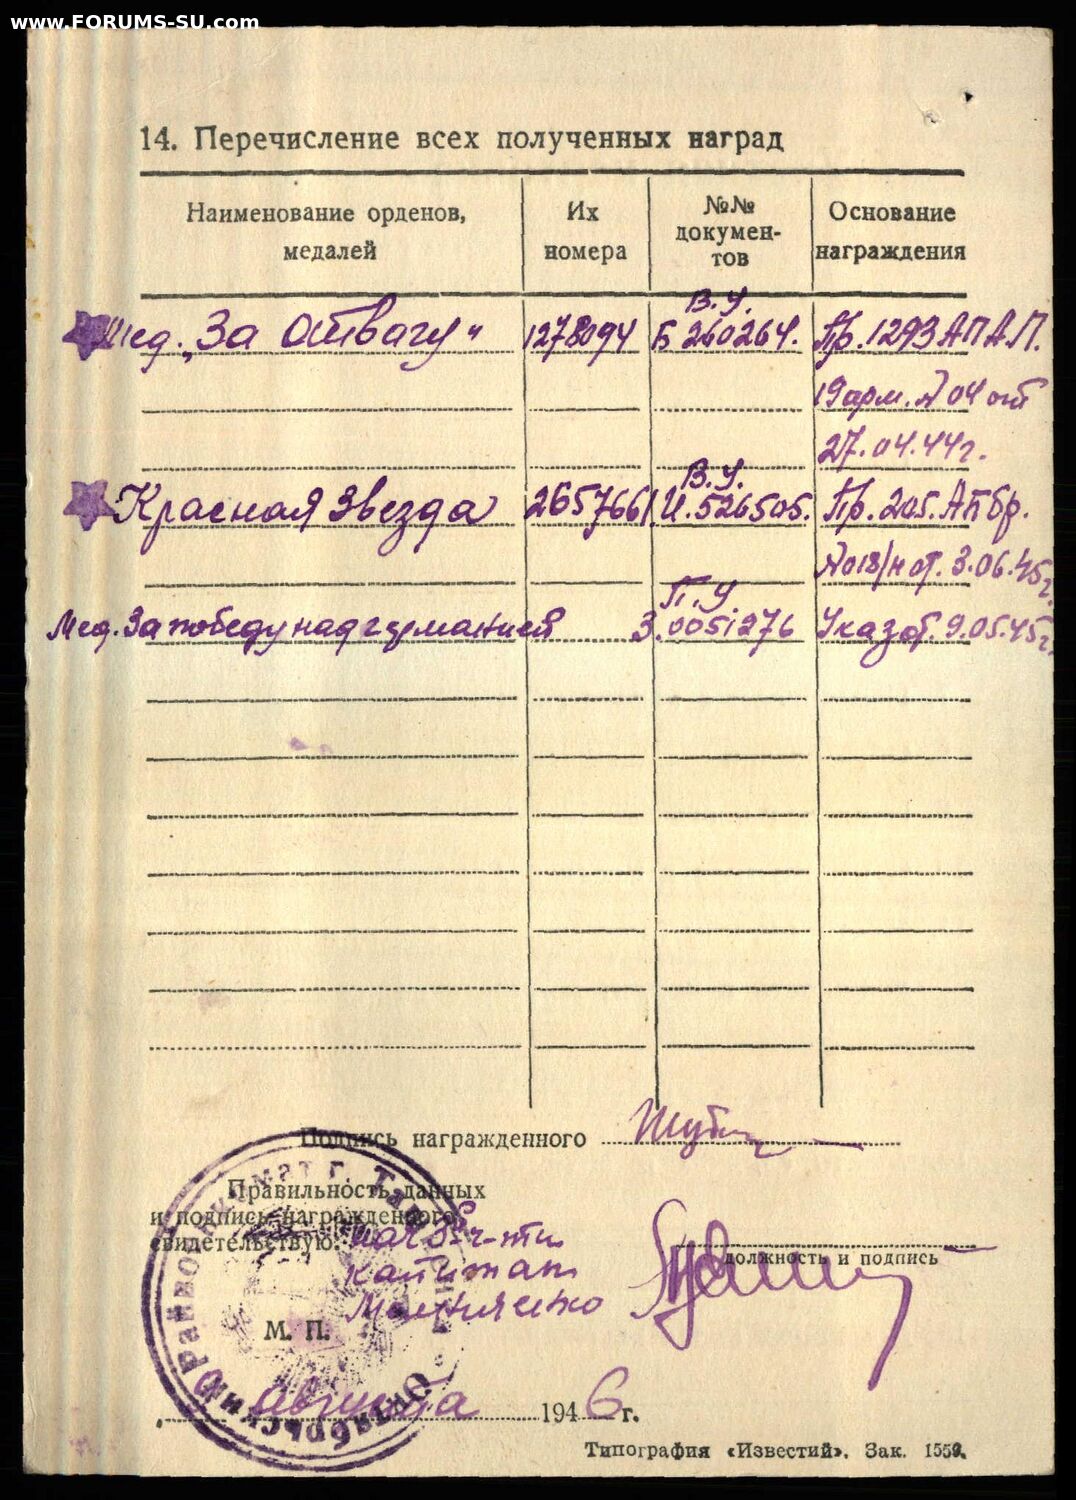 www.FORUMS-SU.com
14. Перечисление всех полученных наград
Наименование орденов, медалей
Их номера
№№ документов
Основание награждения
В.У.
Мед. „За отвагу" 1278094 Б 260264. Пр. 1293 АПАП.
19 арм. № 04 от
27.04.44г.
В.У.
Красная Звезда 2657661. И. 526505. Пр. 205. АПбр.
№018/н от. 3.06.45г.
П.У
Мед. За победу над германией З.0051276 Указ от. 9.05.45г.
Подпись награжденного
Правильность данных
и подпись награжденного
свидетельствую:
нач 
капитан
должность и подпись
М. П.
августа 1946г.
Октябрьский Рай
Типография «Известий». Зак.